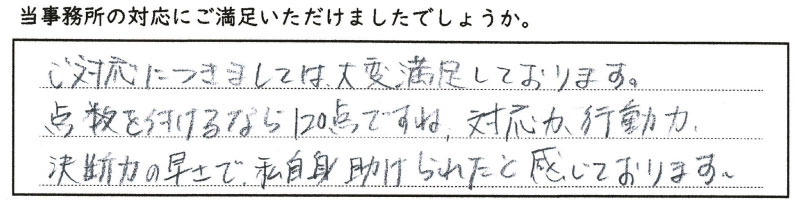 当事務所の対応にご満足いただけましたでしょうか。
ご対応につきましては、大変満足しております。
点数を付けるなら120点ですね、対応力、行動力、
決断力の早さで、私自身助けられたと感じております。